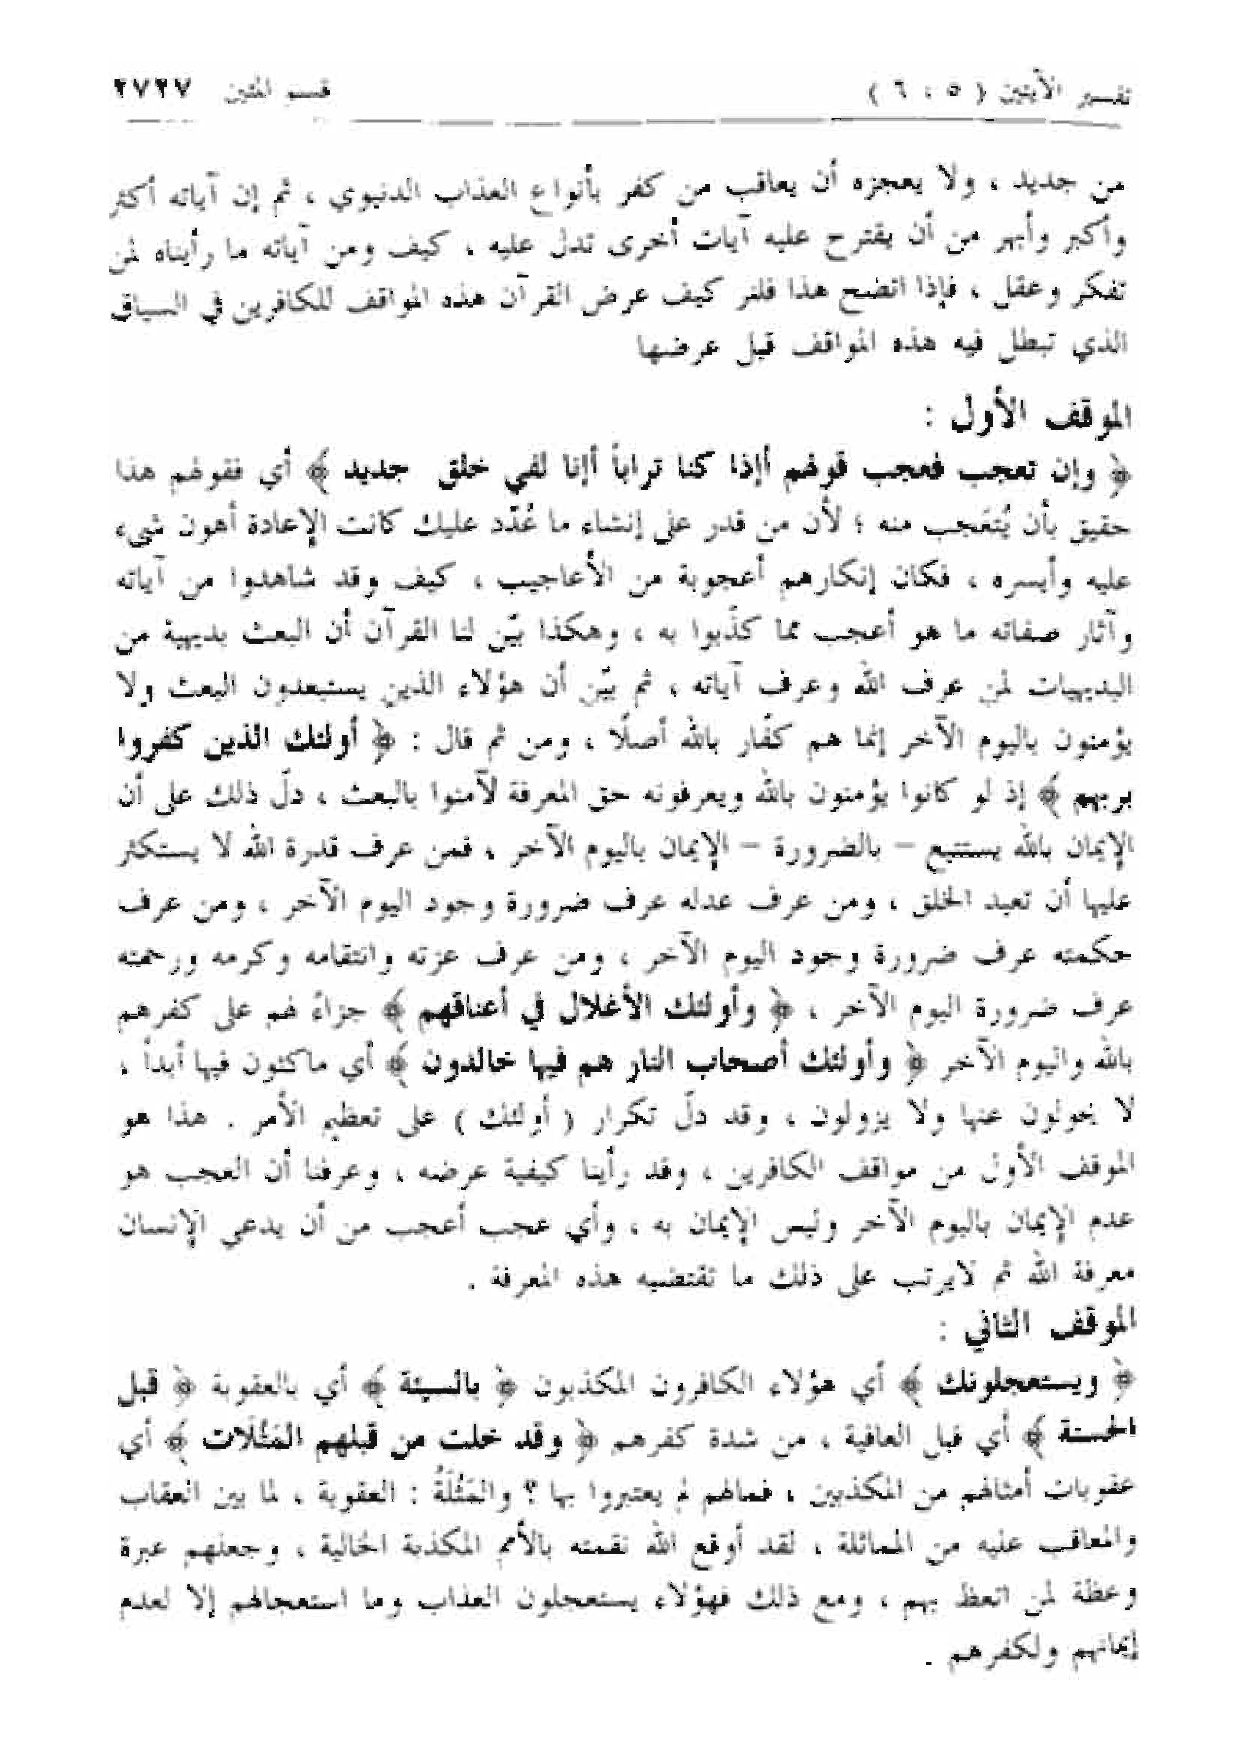 تفسير الآيتين ( ٥ ، ٦ ) قسم المئين ٢٧٢٧
من جديد ، ولا يعجزه أن يعاقب من كفر بأنواع العذاب الدنيوي ، ثم إن آياته أكثر
وأكبر وأبهر من أن يقترح عليه آيات أخرى تدل عليه ، كيف ومن آياته ما رأيناه لمن
تفكر وعقل ، فإذا اتضح هذا فلنر كيف عرض القرآن هذه المواقف للكافرين في السياق
الذي تبطل فيه هذه المواقف قبل عرضها
الموقف الأول :
﴿ وإن تعجب فعجب قولهم أإذا كنا تراباً أإنا لفي خلق جديد ﴾ أي فقولهم هذا
حقيق بأن يُتعَجب منه ؛ لأن من قدر على إنشاء ما عُدّد عليك كانت الإعادة أهون شيء
عليه وأيسره ، فكان إنكارهم أعجوبة من الأعاجيب ، كيف وقد شاهدوا من آياته
وآثار صفاته ما هو أعجب مما كذّبوا به ، وهكذا بيّن لنا القرآن أن البعث بديهية من
البديهيات لمن عرف الله وعرف آياته ، ثم بيّن أن هؤلاء الذين يستبعدون البعث ولا
يؤمنون باليوم الآخر إنما هم كفّار بالله أصلًا ، ومن ثم قال : ﴿ أولئك الذين كفروا
بربهم ﴾ إذ لو كانوا يؤمنون بالله ويعرفونه حق المعرفة لآمنوا بالبعث ، دلّ ذلك على أن
الإيمان بالله يستتبع – بالضرورة – الإيمان باليوم الآخر ، فمن عرف قدرة الله لا يستكثر
عليها أن تعيد الخلق ، ومن عرف عدله عرف ضرورة وجود اليوم الآخر ، ومن عرف
حكمته عرف ضرورة وجود اليوم الآخر ، ومن عرف عزته وانتقامه وكرمه ورحمته
عرف ضرورة اليوم الآخر ، ﴿ وأولئك الأغلال في أعناقهم ﴾ جزاءً لهم على كفرهم
بالله واليوم الآخر ﴿ وأولئك أصحاب النار هم فيها خالدون ﴾ أي ماكثون فيها أبداً ،
لا يحولون عنها ولا يزولون ، وقد دلّ تكرار ( أولئك ) على تعظيم الأمر . هذا هو
الموقف الأول من مواقف الكافرين ، وقد رأينا كيفية عرضه ، وعرفنا أن العجب هو
عدم الإيمان باليوم الآخر وليس الإيمان به ، وأي عجب أعجب من أن يدعي الإنسان
معرفة الله ثم لايرتب على ذلك ما تقتضيه هذه المعرفة .
الموقف الثاني :
﴿ ويستعجلونك ﴾ أي هؤلاء الكافرون المكذبون ﴿ بالسيئة ﴾ أي بالعقوبة ﴿ قبل
الحسنة ﴾ أي قبل العافية ، من شدة كفرهم ﴿ وقد خلت من قبلهم المَثُلَات ﴾ أي
عقوبات أمثالهم من المكذبين ، فمالهم لم يعتبروا بها ؟ والمَثُلَةُ : العقوبة ، لما بين العقاب
والمعاقب عليه من المماثلة ، لقد أوقع الله نقمته بالأمم المكذبة الخالية ، وجعلهم عبرة
وعظة لمن اتعظ بهم ، ومع ذلك فهؤلاء يستعجلون العذاب وما استعجالهم إلا لعدم
إيمانهم ولكفرهم .